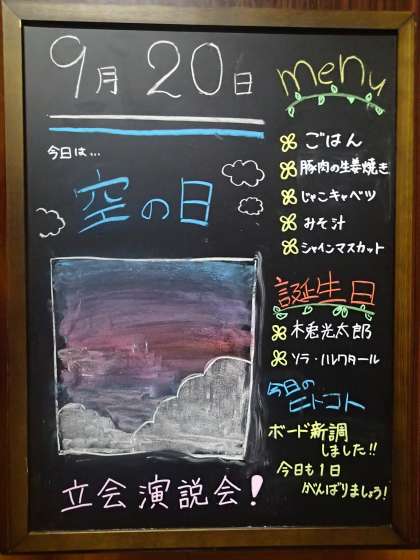 9月20日
今日は…
空の日
立会演説会!
menu
ごはん
豚肉の生姜焼き
じゃこキャベツ
みそ汁
シャインマスカット
誕生日
木兎光太郎
ソラ・ハルワタール
今日の
ヒトコト
ボード新調
しました!!
今日も1日
がんばりましょう!